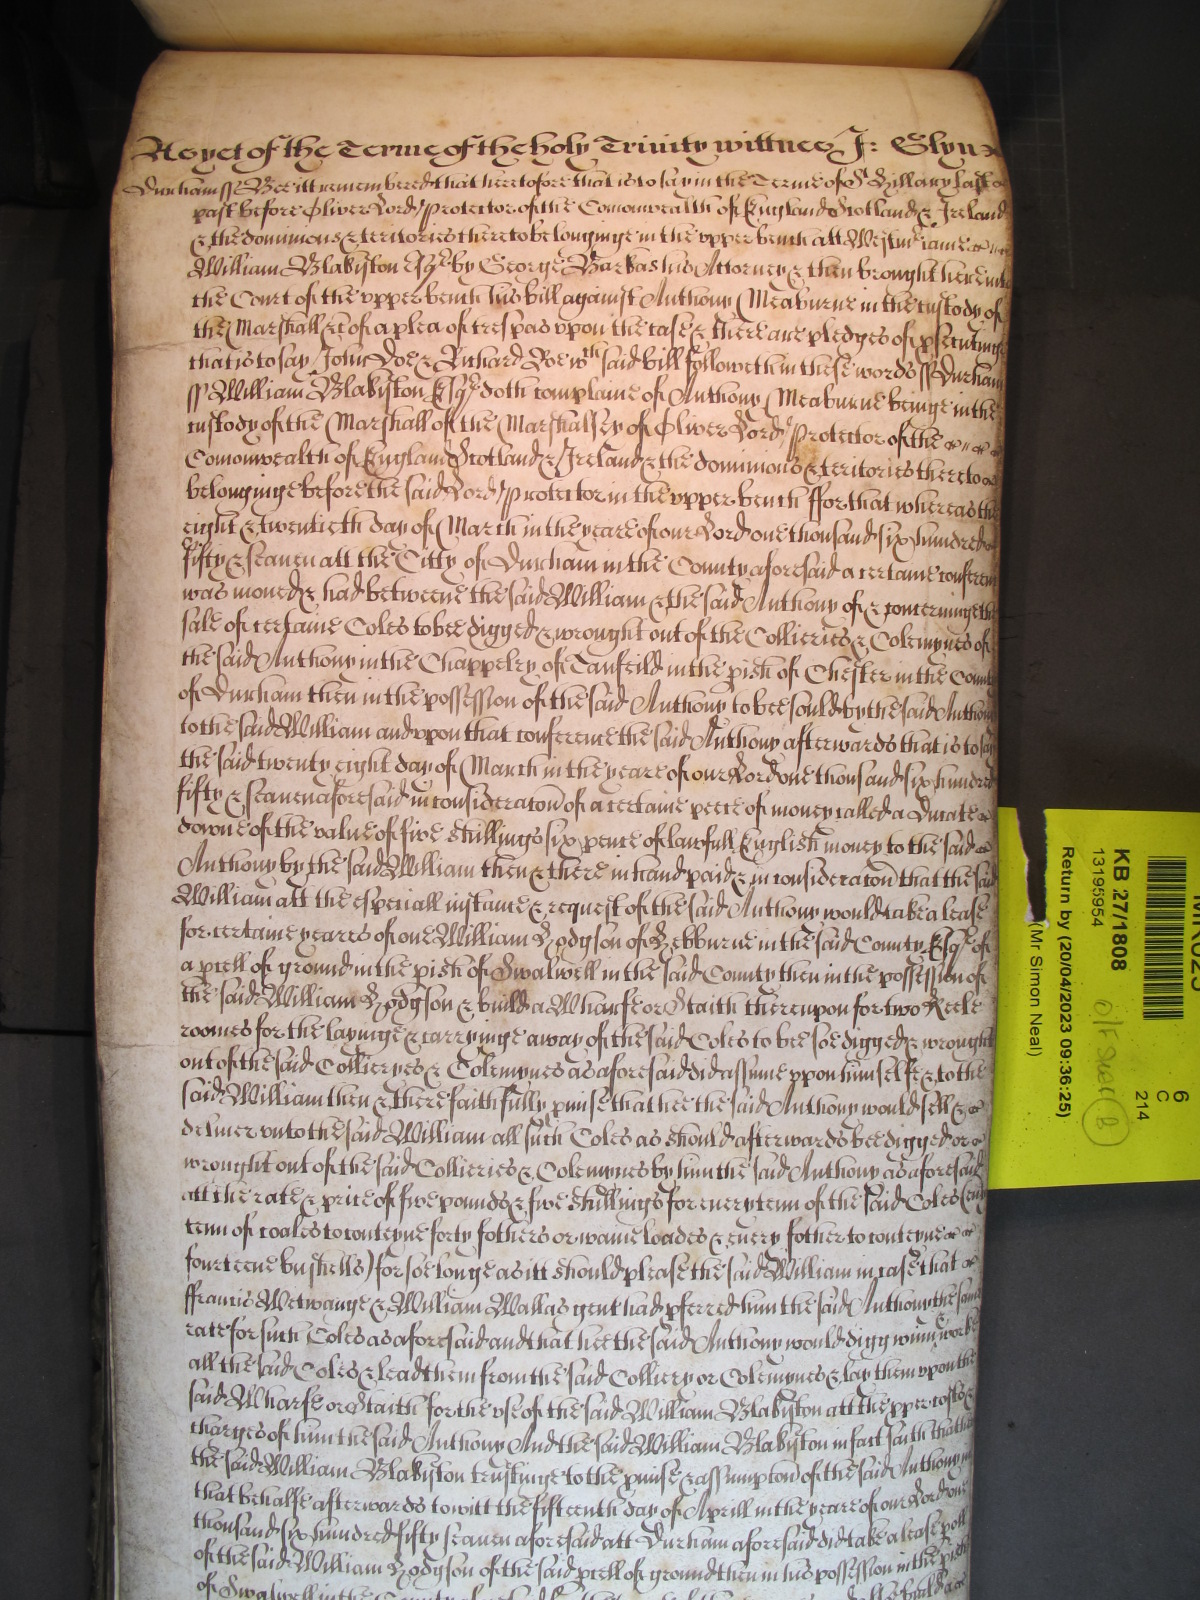 As yet of the Terme of the holy Trinity wittnes J: Glyn
Durham ss Bee itt remembered that heretofore that is to say in the Terme of St Hillary last
past before Oliver Lord Protector of the Comonwealth of England Scotland & Ireland
& the dominions & territories thereto belonginge in the upper bench att Westm came
William Blakiston Esqr by George Barkas his Attorney & then brought here into
the Court of the upper bench his bill against Anthony Meaburne in the custody of
the Marshall &c of a plea of trespas upon the case & there are pledges of psecutinge
that is to say John Doe & Richard Roe wch said bill followeth in these words ss Durham
ss William Blakiston Esqr doth complaine of Anthony Meaburne beinge in the
custody of the Marshall of the Marshalsey of Oliver Lord Protector of the
Comonwealth of England Scotland & Ireland & the dominions & teritories thereto
belonginge before the said Lord Protector in the upper bench ffor that whereas the
eight & twentieth day of March in the yeare of our Lord one thousand six hundred
fifty & seaven att the Citty of Durham in the County aforesaid a certaine conferenc
was moved & had betweene the said William & the said Anthony of & concerninge the
sale of certaine Coles to bee digged & wrought out of the Collieries & Colemynes of
the said Anthony in the Chappelry of Tanfeild in the pish of Chester in the County
of Durham then in the possession of the said Anthony to bee sould by the said Anthony
to the said William and upon that conference the said Anthony afterwards that is to say
the said twenty eight day of March in the yeare of our Lord one thousand six hundred
fifty & seaven aforesaid in consideracon of a certaine peece of money called a Ducate
downe of the value of five shillings six pence of lawfull English money to the said
Anthony by the said William then & there in hand paid & in consideracon that the said
William att the especiall instance & request of the said Anthony would take a lease
for certaine yeares of one William Hodgson of Hebburne in the said County Esqr of
a pcell of ground in the pish of Swalwell in the said County then in the possession of
the said William Hodgson & build a Wharfe or Staith thereupon for two Keele
roomes for the layinge & carryinge away of the said Coles to bee soe digged & wrought
out of the said Collieryes & Colemynes as aforesaid did assume uppon himselfe & to the
said William then & there faithfully pmise that hee the said Anthony would sell &
deliver unto the said William all such Coles as should afterwards bee digged or
wrought out of the said Collieries & Colemynes by him the said Anthony as aforesaid
att the rate & price of five pounds & five shillings for every tenn of the said Coles (every
tenn of coales to conteyne forty fothers or waine loades & every fother to conteyne
fourteene bushells) for soe longe as itt should please the said William in case that
ffrancis Wetwange & William Wallas gent had pferred him the said Anthony the same
rate for such Coles as aforesaid and that hee the said Anthony would digg winn & worke
all the said Coles & lead them from the said Colliery or Colemynes & lay them upon the
said Wharfe or Staith for the use of the said William Blakiston att the pper costs &
charges of him the said Anthony And the said William Blakiston in fact saith that hee
the said William Blakiston trustinge to the pmise & assumpcon of the said Anthony in
that behalfe afterwards to witt the fifteenth day of Aprill in the yeare of our Lord one
thousand six hundred fifty seaven aforesaid att Durham aforesaid did take a lease poll
of the said William Hodgson of the said pcell of ground then in his possession in the pish
of Swalwell in the County
KB 27/1808
13195954
Return by (20/04/2023 09:36:25)
(Mr Simon Neal)
6
C
214
B